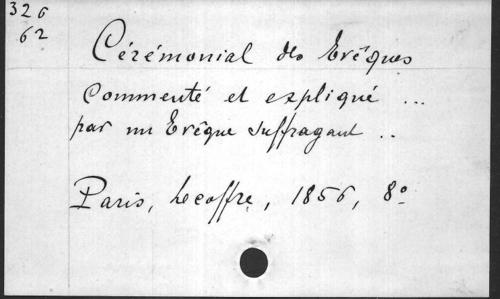 326
62
Cérémonial des Evêques
commenté et expliqué ...
par un Evêque suffragant ..
Paris, Lecoffre, 1856, 8º